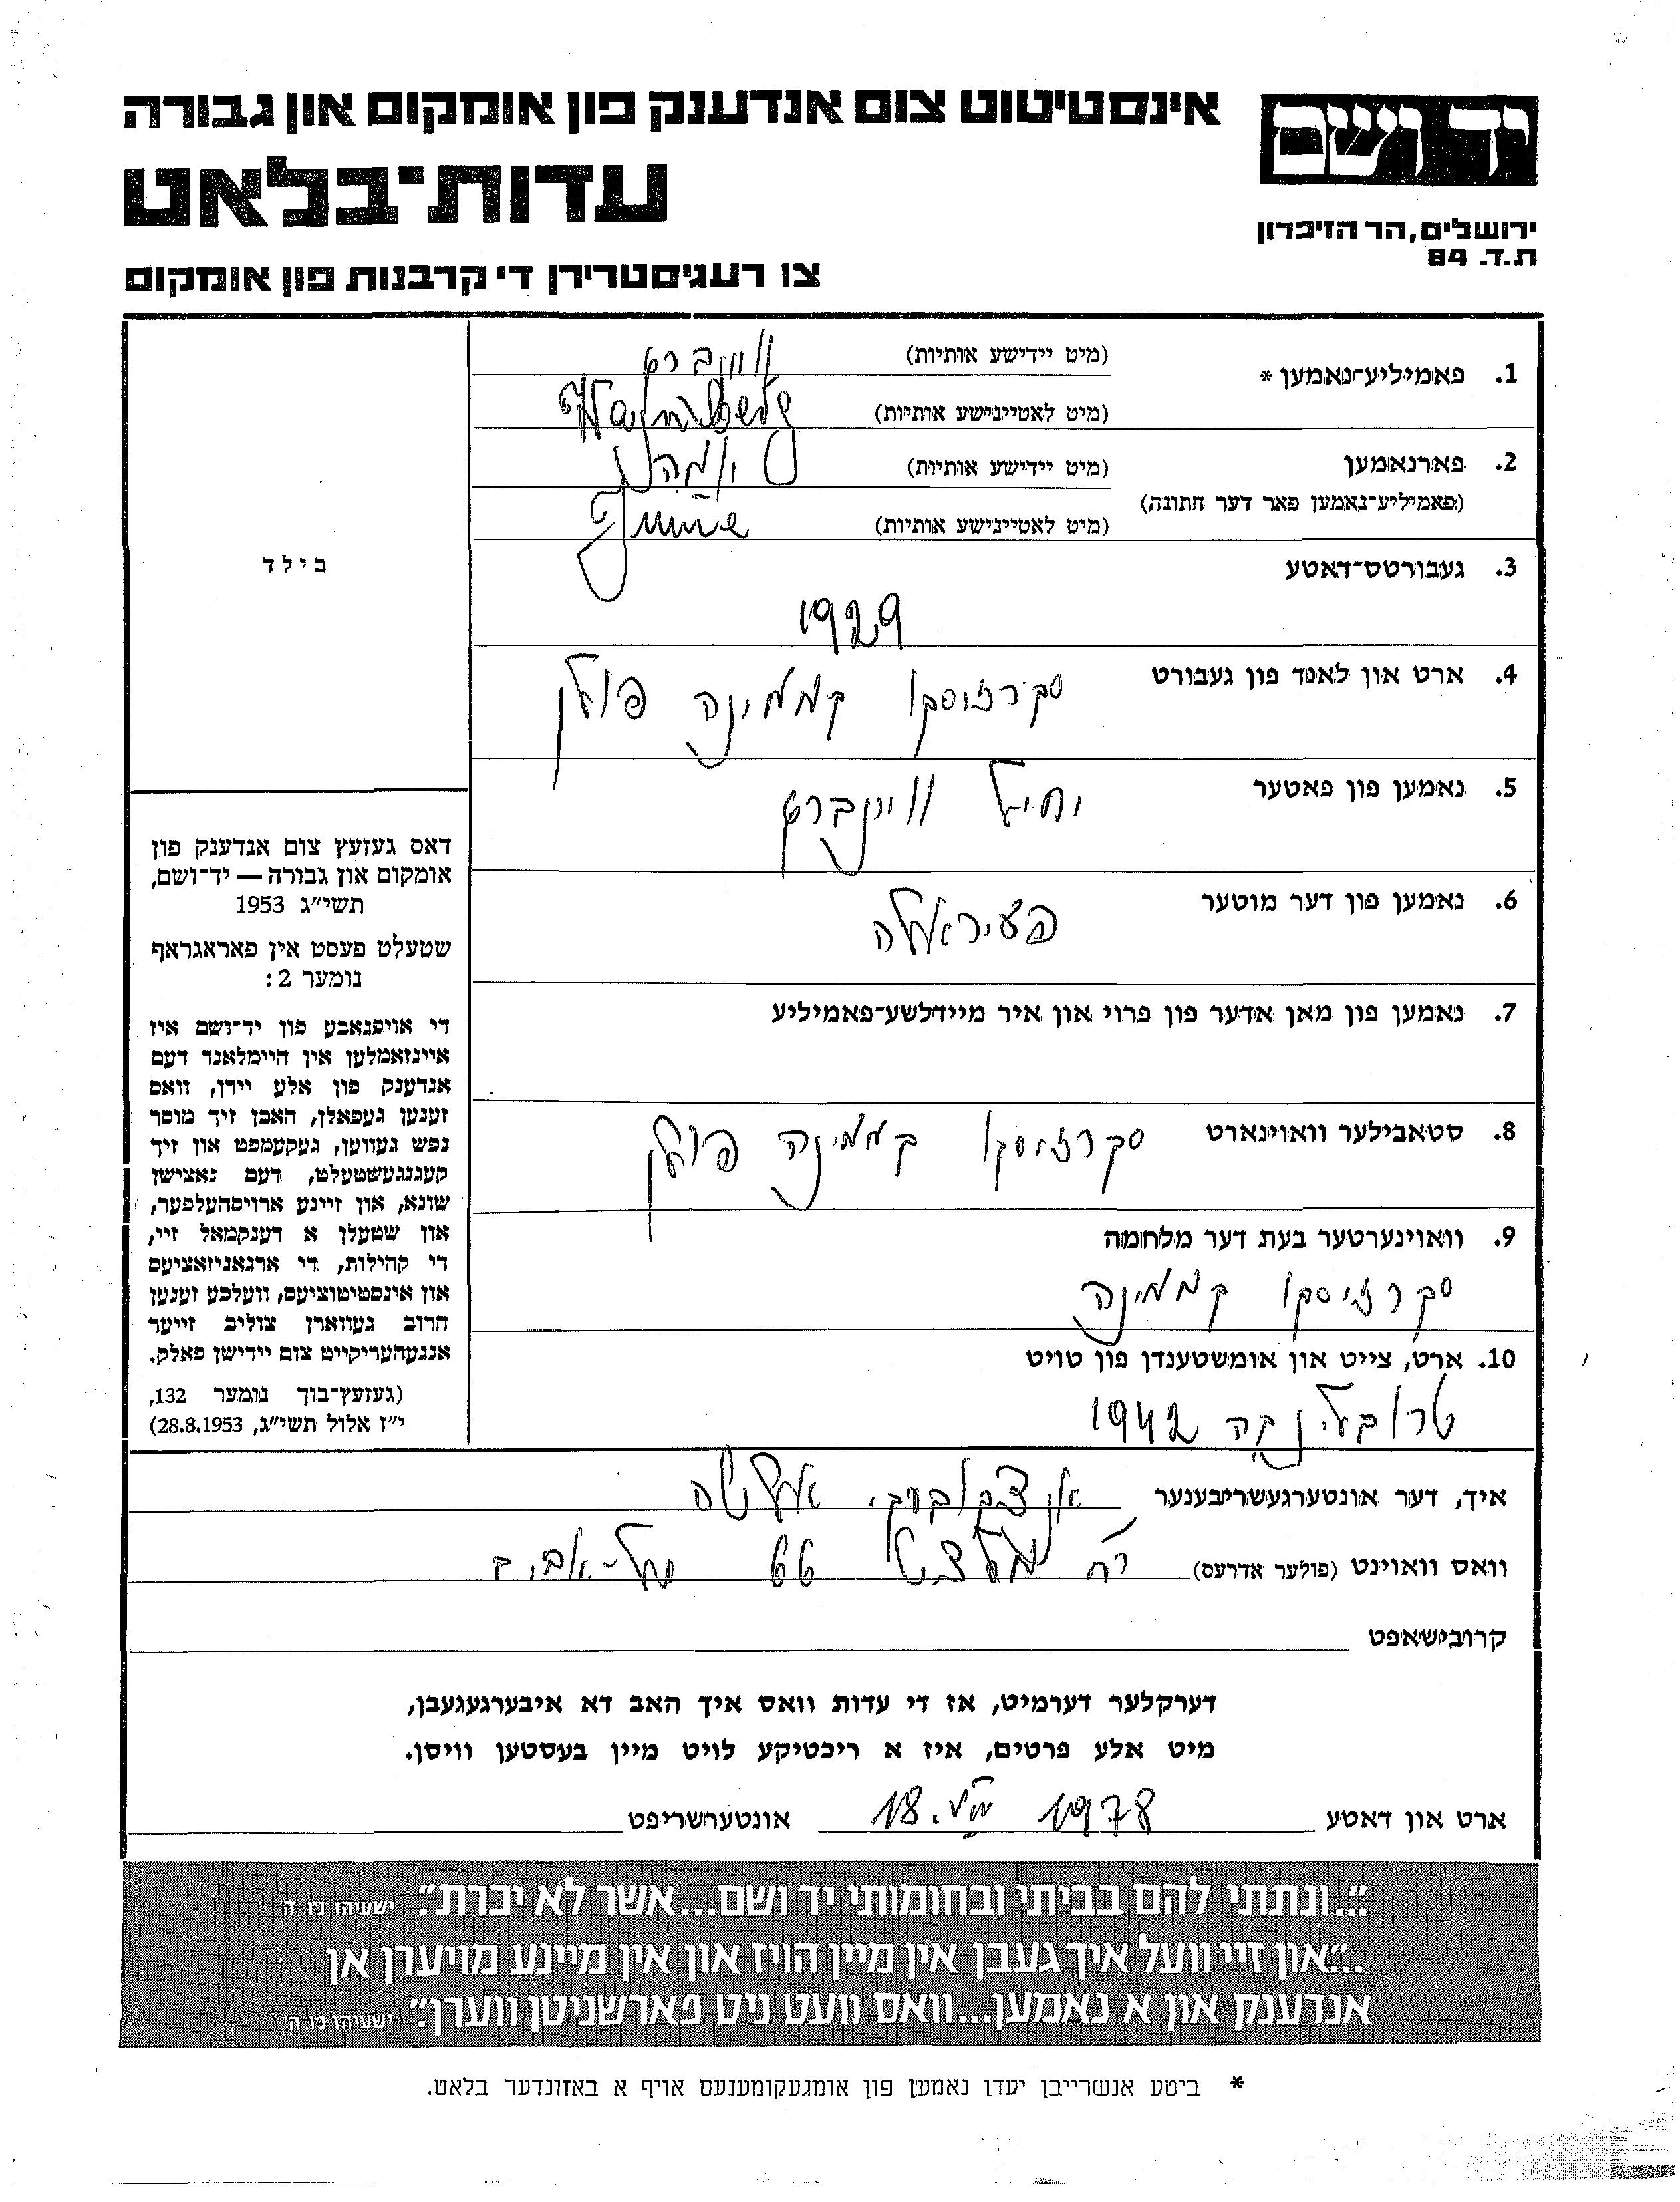 אינסטיטוט צום אנדענק פון אומקום און גבורה
יד ושם
עדות־בלאט
ירושלים, הר הזיכרון
ת.ד. 84
צו רעגיסטרירן די קרבנות פון אומקום
1. פאמיליע־נאמען *
(מיט יידישע אותיות)
(מיט לאטיינישע אותיות)
2. פארנאמען
(מיט יידישע אותיות)
(פאמיליע־נאמען פאר דער חתונה)
(מיט לאטיינישע אותיות)
בילד
3. געבורטס־דאטע
1929
4. ארט און לאנד פון געבורט
סקרזיסקו קממינה פולן
5. נאמען פון פאטער
יחיאל ווינברג
6. נאמען פון דער מוטער
7. נאמען פון מאן אדער פון פרוי און איר מיידלשע־פאמיליע
8. סטאבילער וואוינארט
סקרזיסקו קממינה פולן
9. וואוינערטער בעת דער מלחמה
סקרזיסקו קממינה
10. ארט, צייט און אומשטענדן פון טויט
1942
דאס געזעץ צום אנדענק פון
אומקום און גבורה — יד־ושם,
תשי״ג 1953
שטעלט פעסט אין פאראגראף
נומער 2:
די אויפגאבע פון יד־ושם איז
איינזאמלען אין היימלאנד דעם
אנדענק פון אלע יידן, וואס
זענען געפאלן, האבן זיך מוסר
נפש געווען, געקעמפט און זיך
קעגנגעשטעלט, דעם נאצישן
שונא, און זיינע ארויסהעלפער,
און שטעלן א דענקמאל זיי,
די קהילות, די ארגאניזאציעס
און אינסטיטוציעס, וועלכע זענען
חרוב געווארן צוליב זייער
אנגעהעריקייט צום יידישן פאלק.
(געזעץ־בוך נומער 132,
י״ז אלול תשי״ג, 28.8.1953)
איך, דער אונטערגעשריבענער
וואס וואוינט (פולער אדרעס) רח 66 תל־אביב
קרובישאפט
דערקלער דערמיט, אז די עדות וואס איך האב דא איבערגעגעבן,
מיט אלע פרטים, איז א ריכטיקע לויט מיין בעסטען וויסן.
ארט און דאטע 18. 1978 אונטערשריפט
״...ונתתי להם בביתי ובחומותי יד ושם...אשר לא יכרת״. ישעיהו נו, ה׳
״...און זיי וועל איך געבן אין מיין הויז און אין מיינע מויערן אן
אנדענק און א נאמען...וואס וועט ניט פארשניטן ווערן״. ישעיהו נו ה׳
* ביטע אנשרייבן יעדן נאמען פון אומגעקומענעם אויף א באזונדער בלאט.